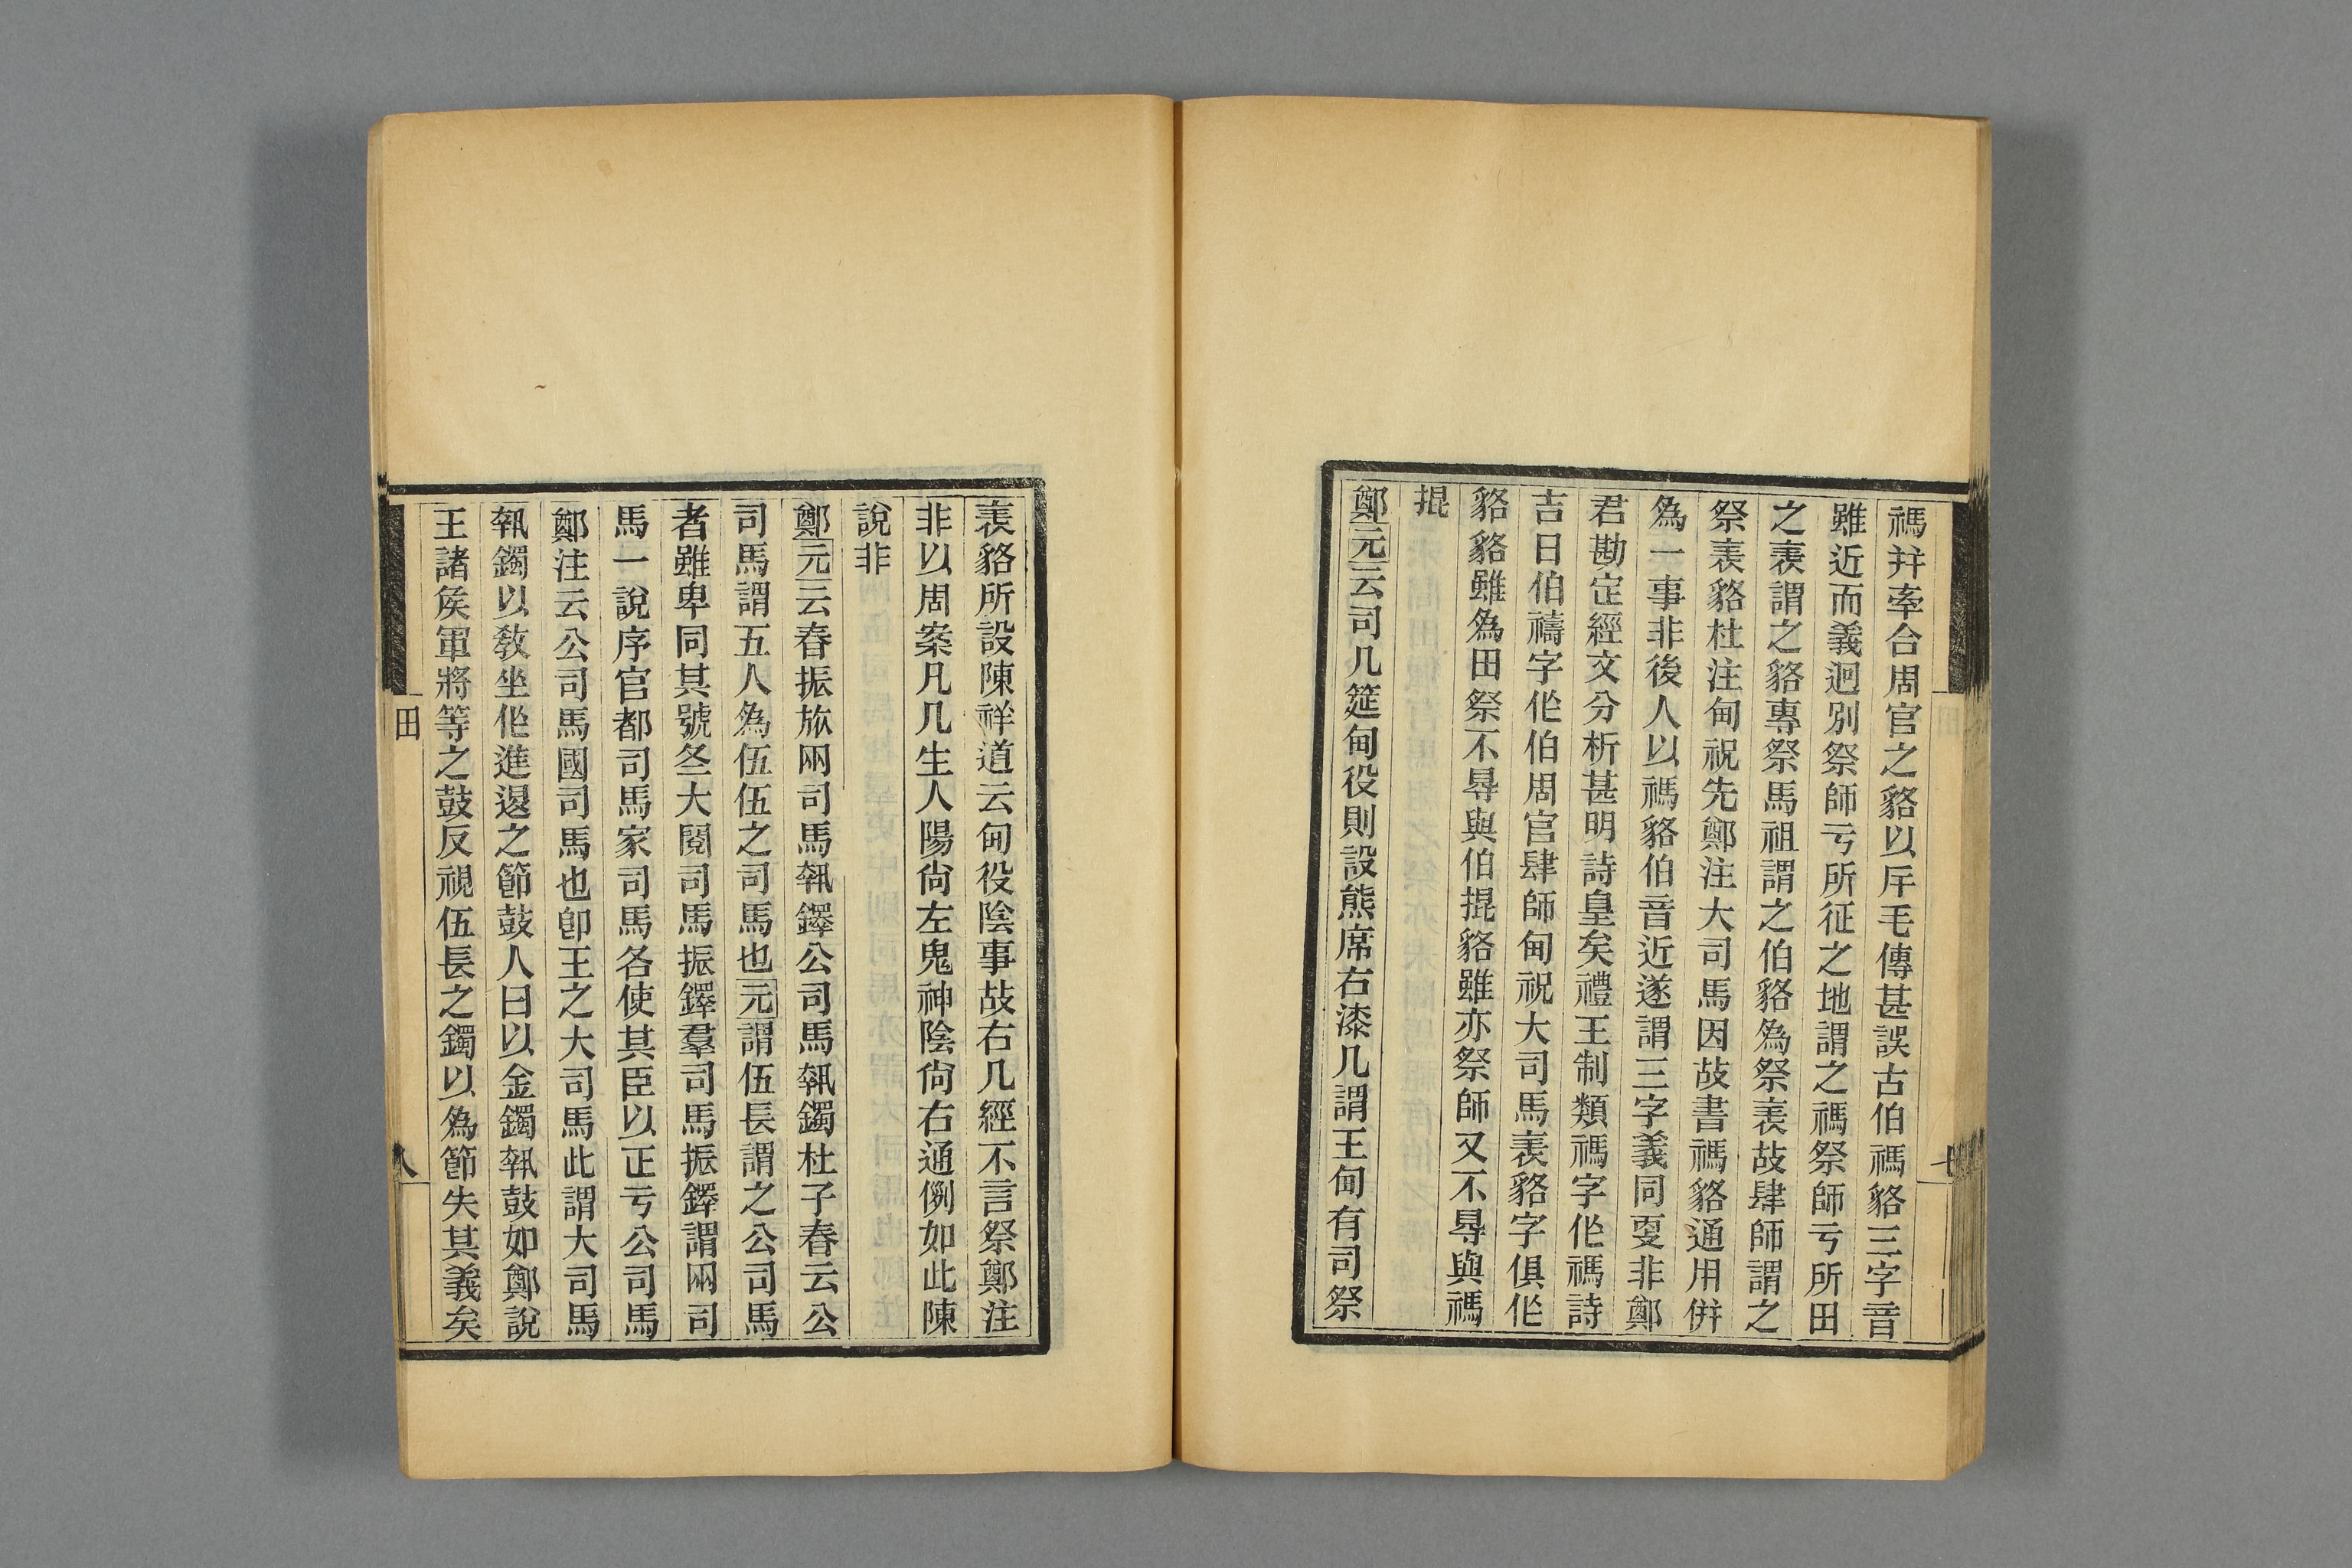 禡幷牽合周官之貉以斥毛傳甚誤古伯禡貉三字音
雖近而義迥別祭師亏所征之地謂之禡祭師亏所田
之表謂之貉專祭馬祖謂之伯貉爲祭表故肆師謂之
祭表貉杜注甸祝先鄭注大司馬因故書禡貉通用併
爲一事非後人以禡貉伯音近遂謂三字義同㪅非鄭
君勘定經文分析甚明詩皇矣禮王制類禡字作禡詩
吉日伯禱字作伯周官肆師甸祝大司馬表貉字俱作
貉貉雖爲田祭不㝵與伯掍貉雖亦祭師又不㝵與禡
掍
鄭元云司几筵甸役則設熊席右漆几謂王甸有司祭
表貉所設陳祥道云甸役陰事故右几經不言祭鄭注
非以周案凡几生人陽尙左鬼神陰尙右通例如此陳
說非
鄭元云春振旅兩司馬執鐸公司馬執鐲杜子春云公
司馬謂五人爲伍伍之司馬也元謂伍長謂之公司馬
者雖卑同其號冬大閱司馬振鐸羣司馬振鐸謂兩司
馬一說序官都司馬家司馬各使其臣以正亏公司馬
鄭注云公司馬國司馬也卽王之大司馬此謂大司馬
執鐲以敎坐作進退之節鼓人曰以金鐲執鼓如鄭說
王諸矦軍將等之鼓反視伍長之鐲以爲節失其義矣
田
八
七